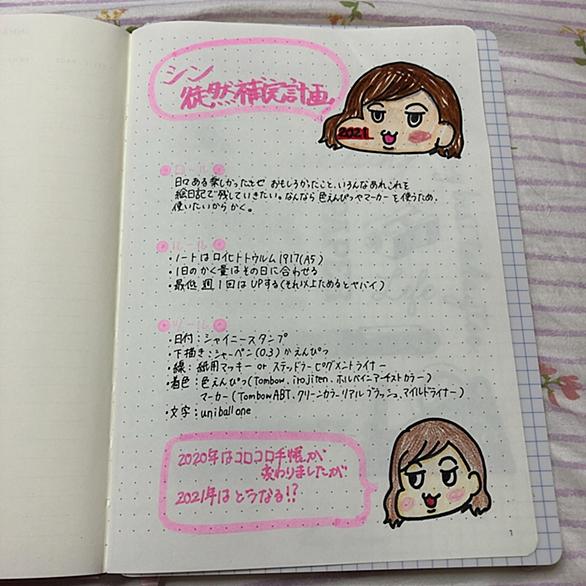 シン
徒然補完計画!
2021
ロール
日々ある楽しかったことや おもしろかったこと、いろんなあれこれを
絵日記で残していきたい。なんなら色えんぴつやマーカーを使うため、
使いたいからかく。
ルール
・ノートはロイヒトトウルム1917(A5)
・1日のかく量はその日に合わせる
・最低 週1回はUPする(それ以上ためるとヤバイ)
ツール
・日付:シャイニースタンプ
・下描き:シャーペン(0.3)かえんぴつ
・線:紙用マッキー or ステッドラーピグメントライナー
・着色:色えんぴつ(Tombow、irojiten、ホルベインアーチストカラー)
マーカー(TombowABT、クリーンカラーリアルブラッシュ、マイルドライナー)
・文字:uniball one
2020年はコロコロ手帳が
変わりましたが
2021年はどうなる!?
1